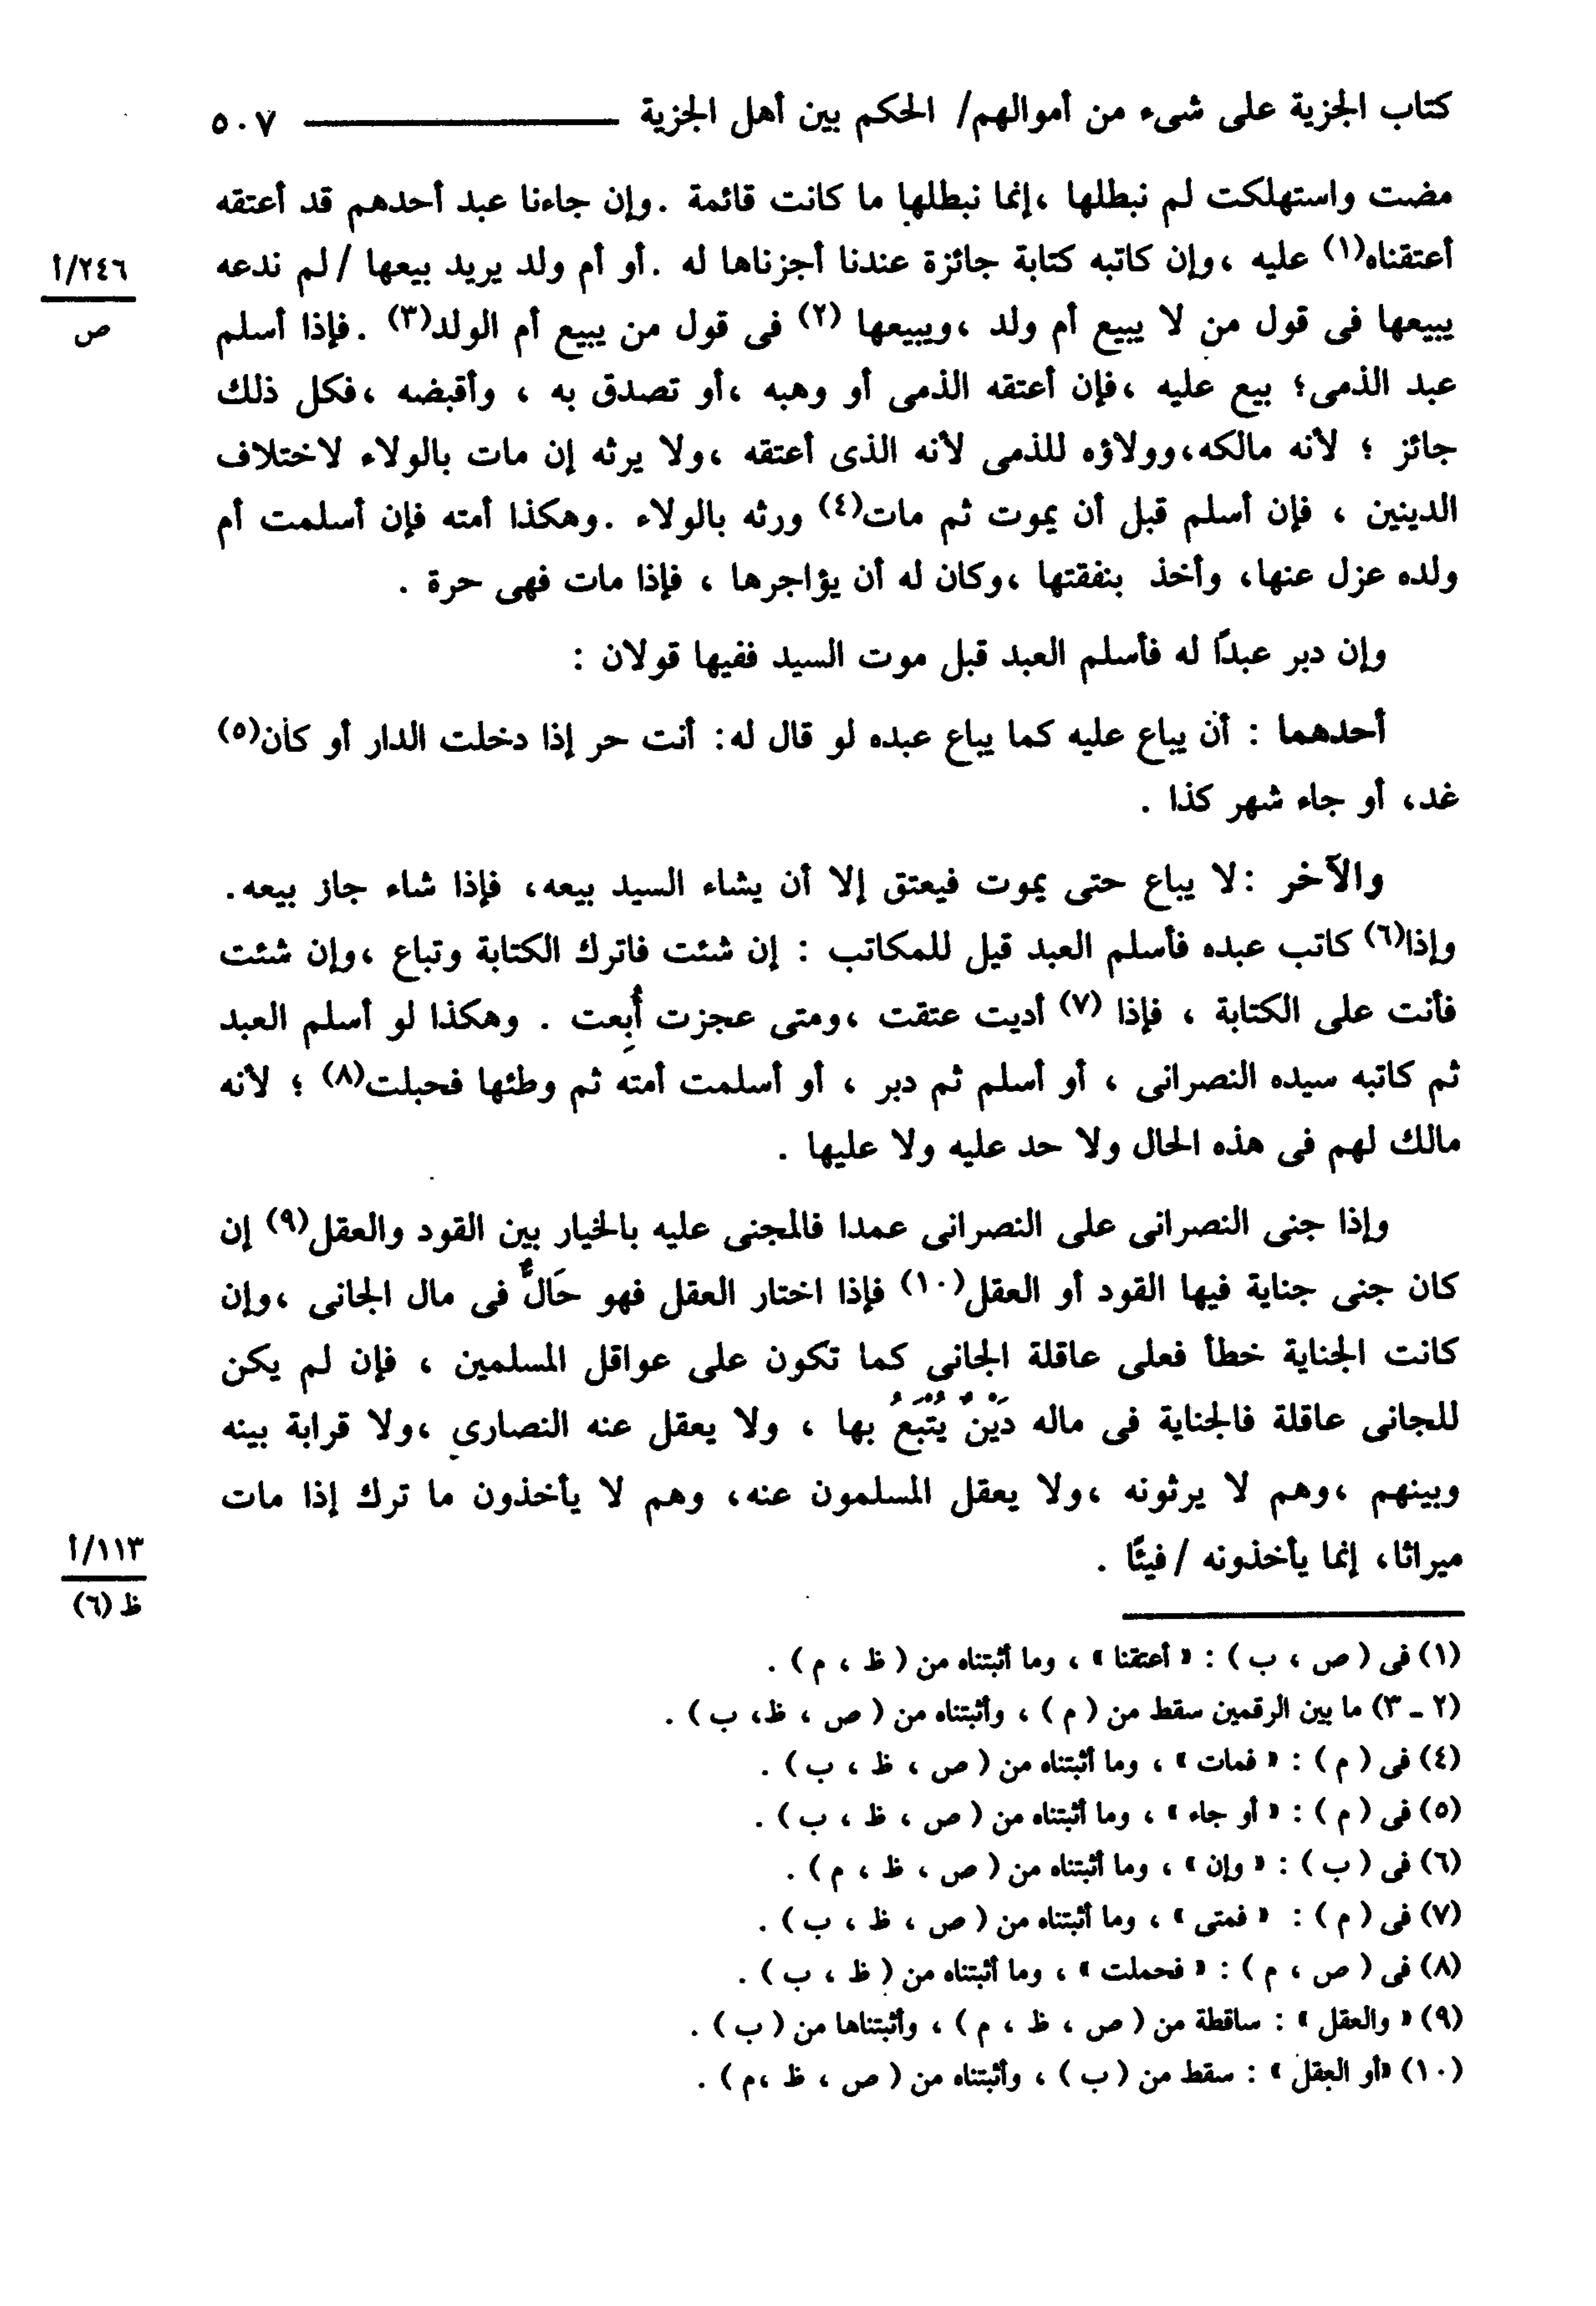 كتاب الجزية على شىء من أموالهم/ الحكم بين أهل الجزية ٥٠٧
مضت واستهلكت لم نبطلها ،إنما نبطلها ما كانت قائمة .وإن جاءنا عبد أحدهم قد أعتقه
أعتقناه(١) عليه ،وإن كاتبه كتابة جائزة عندنا أجزناها له .أو أم ولد يريد بيعها /لم ندعه
٢٤٦/أ
ص
يبيعها فى قول من لا يبيع أم ولد ،ويبيعها (٢) فى قول من يبيع أم الولد(٣) .فإذا أسلم
عبد الذمى؛ بيع عليه ،فإن أعتقه الذمى أو وهبه ،أو تصدق به ، وأقبضه ،فكل ذلك
جائز ؛ لأنه مالكه،وولاؤه للذمى لأنه الذى أعتقه ،ولا يرثه إن مات بالولاء لاختلاف
الدينين ، فإن أسلم قبل أن يموت ثم مات(٤) ورثه بالولاء .وهكذا أمته فإن أسلمت أم
ولده عزل عنها، وأخذ بنفقتها ،وكان له أن يؤاجرها ، فإذا مات فهى حرة .
وإن دبر عبدًا له فأسلم العبد قبل موت السيد ففيها قولان :
أحدهما : أن يباع عليه كما يباع عبده لو قال له: أنت حر إذا دخلت الدار أو كان(٥)
غد، أو جاء شهر كذا .
والآخر :لا يباع حتى يموت فيعتق إلا أن يشاء السيد بيعه، فإذا شاء جاز بيعه.
وإذا(٦) كاتب عبده فأسلم العبد قيل للمكاتب : إن شئت فاترك الكتابة وتباع ،وإن شئت
فأنت على الكتابة ، فإذا (٧) أديت عتقت ،ومتى عجزت أُبِعت . وهكذا لو أسلم العبد
ثم كاتبه سيده النصرانى ، أو أسلم ثم دبر ، أو أسلمت أمته ثم وطئها فحبلت(٨) ؛ لأنه
مالك لهم فى هذه الحال ولا حد عليه ولا عليها .
وإذا جنى النصرانى على النصرانى عمدا فالمجنى عليه بالخيار بين القود والعقل(٩) إن
كان جنى جناية فيها القود أو العقل(١٠) فإذا اختار العقل فهو حَالٌّ فى مال الجانى ،وإن
كانت الجناية خطأ فعلى عاقلة الجانى كما تكون على عواقل المسلمين ، فإن لم يكن
للجانى عاقلة فالجناية فى ماله دَيْنٌ يُتْبَعُ بها ، ولا يعقل عنه النصارى ،ولا قرابة بينه
وبينهم ،وهم لا يرثونه ،ولا يعقل المسلمون عنه، وهم لا يأخذون ما ترك إذا مات
ميراثا، إنما يأخذونه /فيئًا .
١١٣/أ
ظ (٦)
(١) فى ( ص ، ب ) : « أعتقنا » ، وما أثبتناه من ( ظ ، م ) .
(٢ ـ ٣) ما بين الرقمين سقط من ( م ) ، وأثبتناه من ( ص ، ظ، ب ) .
(٤) فى ( م ) : « فمات » ، وما أثبتناه من ( ص ، ظ ، ب ) .
(٥) فى ( م ) : « أو جاء » ، وما أثبتناه من ( ص ، ظ ، ب ) .
(٦) فى ( ب ) : « وإن » ، وما أثبتناه من ( ص ، ظ ، م ) .
(٧) فى ( م ) : « فمتى » ، وما أثبتناه من ( ص ، ظ ، ب ) .
(٨) فى ( ص ، م ) : « فحملت » ، وما أثبتناه من ( ظ ، ب ) .
(٩) « والعقل » : ساقطة من ( ص ، ظ ، م ) ، وأثبتناها من ( ب ) .
(١٠) «أو العقل » : سقط من ( ب ) ، وأثبتناه من ( ص ، ظ ،م ) .